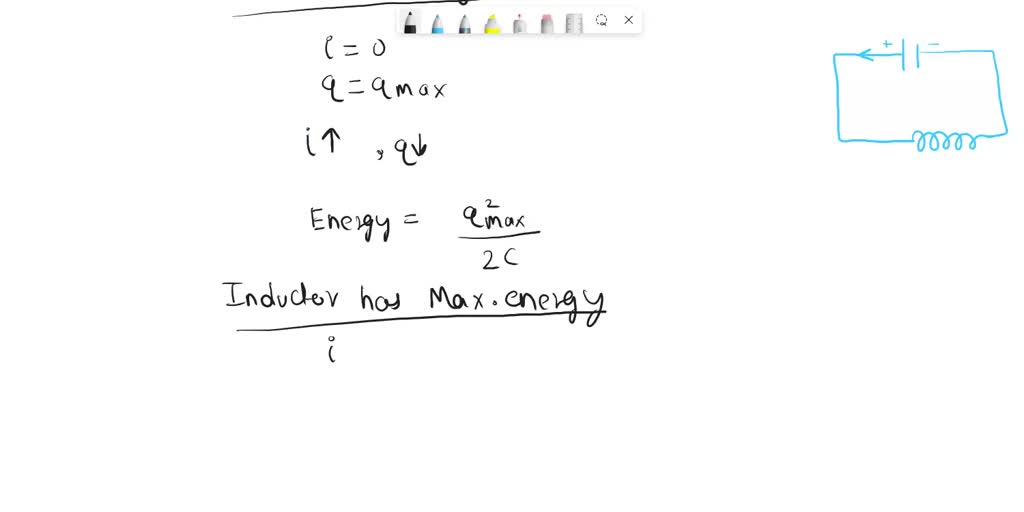 i = 0
q = qmax
i↑ , q↓
Energy = q²max / 2C
Inductor has Max. energy
i
+ −